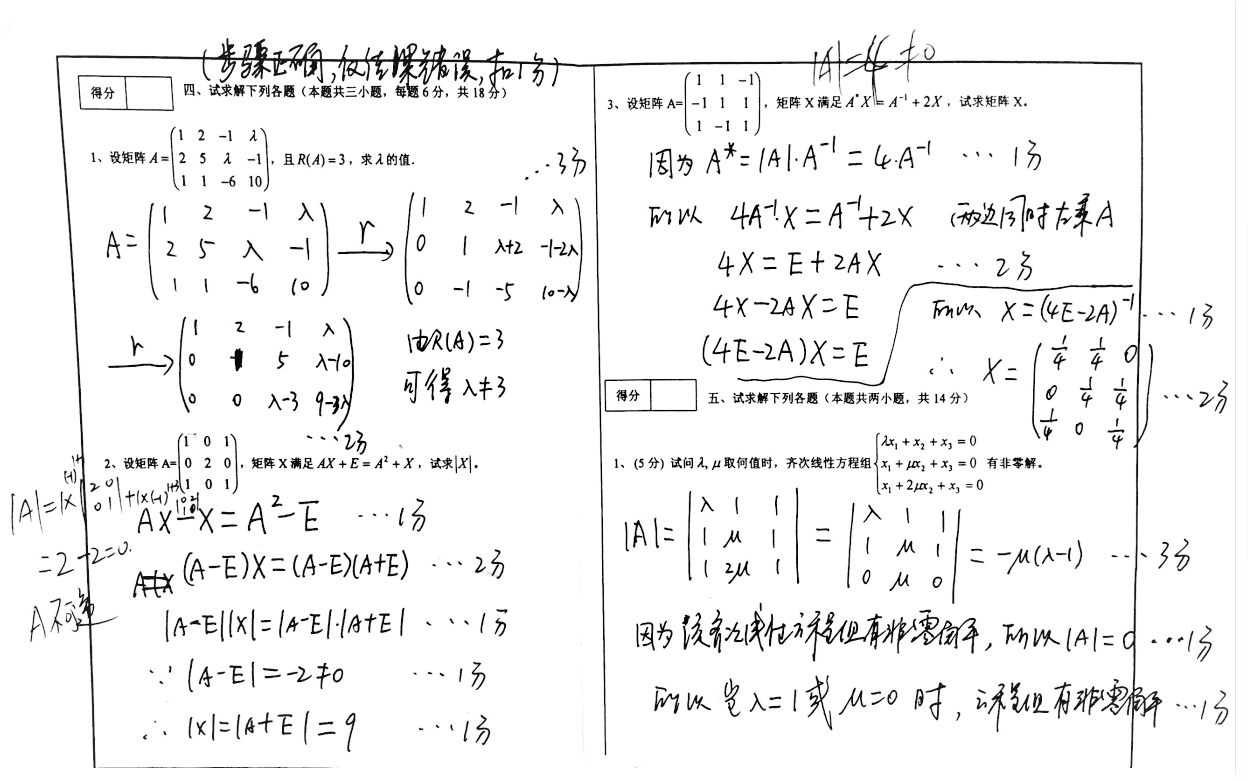 (步骤正确,仅结果错误,扣1分)
得分
四、试求解下列各题（本题共三小题，每题6分，共18分）
1、设矩阵 A=(1 2 -1 λ; 2 5 λ -1; 1 1 -6 10)，且R(A)=3，求λ的值.
...3分
A=(1 2 -1 λ; 2 5 λ -1; 1 1 -6 10) →r (1 2 -1 λ; 0 1 λ+2 -1-2λ; 0 -1 -5 10-λ)
→r (1 2 -1 λ; 0 1 5 λ-10; 0 0 λ-3 9-3λ)
由R(A)=3
可得 λ≠3
...2分
2、设矩阵 A=(1 0 1; 0 2 0; 1 0 1)，矩阵X满足 AX+E=A²+X，试求|X|。
|A|=1×(-1)^{1+1}|2 0; 0 1|+1×(-1)^{1+3}|0 2; 1 0|
=2-2=0.
A不可逆
AX-X=A²-E ...1分
(A-E)X=(A-E)(A+E) ...2分
|A-E||X|=|A-E|·|A+E| ...1分
∵ |A-E|=-2≠0 ...1分
∴ |X|=|A+E|=9 ...1分
|A|=4≠0
3、设矩阵 A=(1 1 -1; -1 1 1; 1 -1 1)，矩阵X满足 A*X=A⁻¹+2X，试求矩阵X。
因为 A*=|A|·A⁻¹=4·A⁻¹ ...1分
所以 4A⁻¹·X=A⁻¹+2X (两边同时左乘A
4X=E+2AX ...2分
4X-2AX=E
(4E-2A)X=E
所以 X=(4E-2A)⁻¹ ...1分
∴ X=(1/4 1/4 0; 0 1/4 1/4; 1/4 0 1/4) ...2分
得分
五、试求解下列各题（本题共两小题，共14分）
1、(5分) 试问λ, μ取何值时，齐次线性方程组{λx₁+x₂+x₃=0; x₁+μx₂+x₃=0; x₁+2μx₂+x₃=0 有非零解。
|A|=|λ 1 1; 1 μ 1; 1 2μ 1|=|λ 1 1; 1 μ 1; 0 μ 0|=-μ(λ-1) ...3分
因为该齐次线性方程组有非零解,所以|A|=0 ...1分
所以当λ=1或μ=0时,方程组有非零解 ...1分